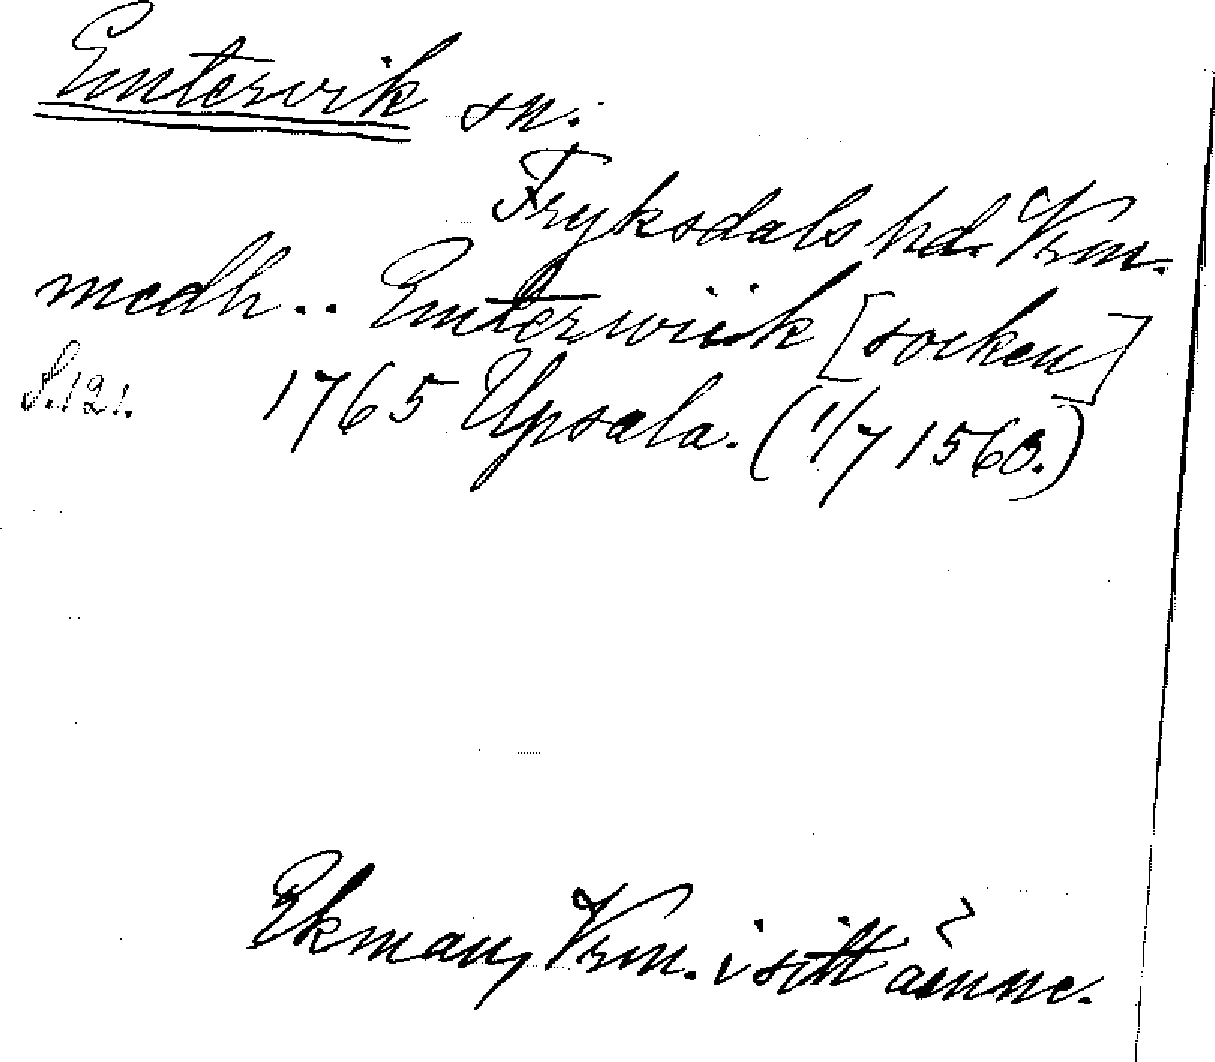 Emtervik sn.
Fryksdals hd. Vrm.
medh.. Emterwiik [socken]
S. 121. 1765 Upsala. (1/7 1560.)
Ekman, Vrm. i sitt ämne.